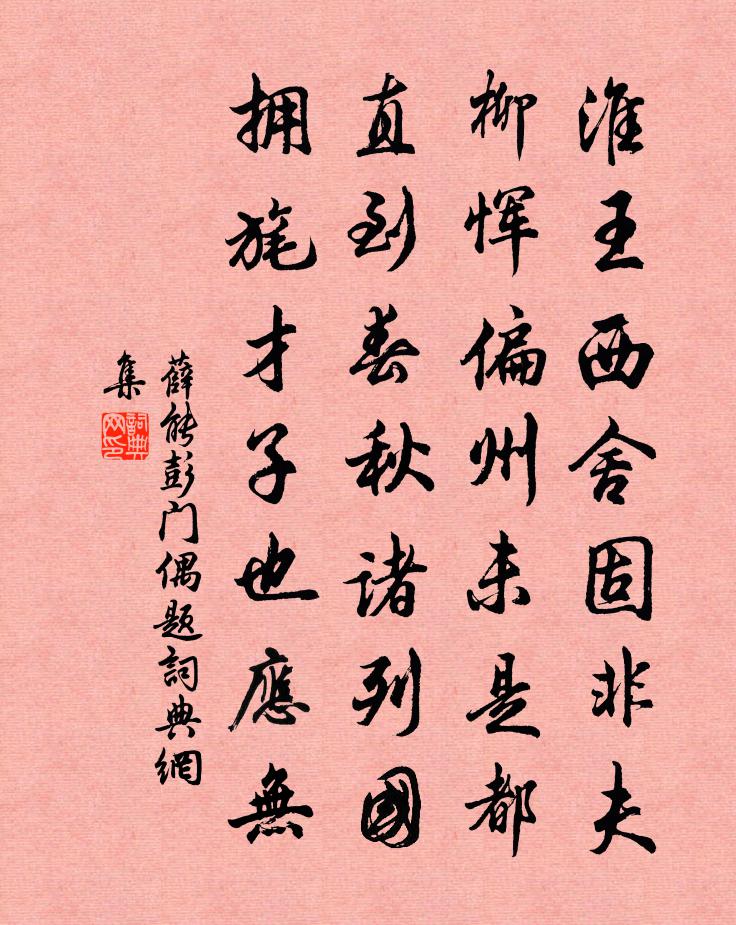 淮王西舍固非夫
柳恽偏州未是都
直到春秋諸列國
拥旄才子也應無
薛能彭门偶题詞典網
集
詞典网印